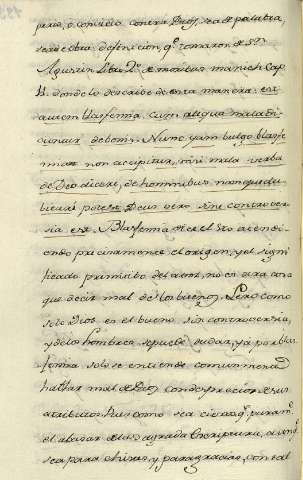 para, ó convicio contra Dios, sea de palabra,
sea de obra: definicion, q.e tomaron de S.n
Agustin Libro 2.º de moribus manich. Cap.
11. donde lo describe de esta manera: est
autem blasfemia, cum aliqua mala di-
cuntur de bonis. Nunc jam vulgo blasfe-
mia non accipitur, nisi mala verba
de Deo dicere, de hominibus namque du-
bitari potest, Deus vero sine controver-
sia est. Blasfemia dice el Sto. aten di-
endo precisamente el origen, y el signi-
ficado primitibo del actor, no es otra cosa
que decir mal de los buenos. Pero como
solo Dios es el bueno sin controversia,
y de los hombres se puede dudar, ya por blas-
femia solo se entiende comunmente
hablar mal de Dios con desprecio de sus
atributos. Asi como sea cierto, q.e puram.te
el abusar de la sagrada Escriptura, aunq.e
sea para chistes, y para gracias, con tal